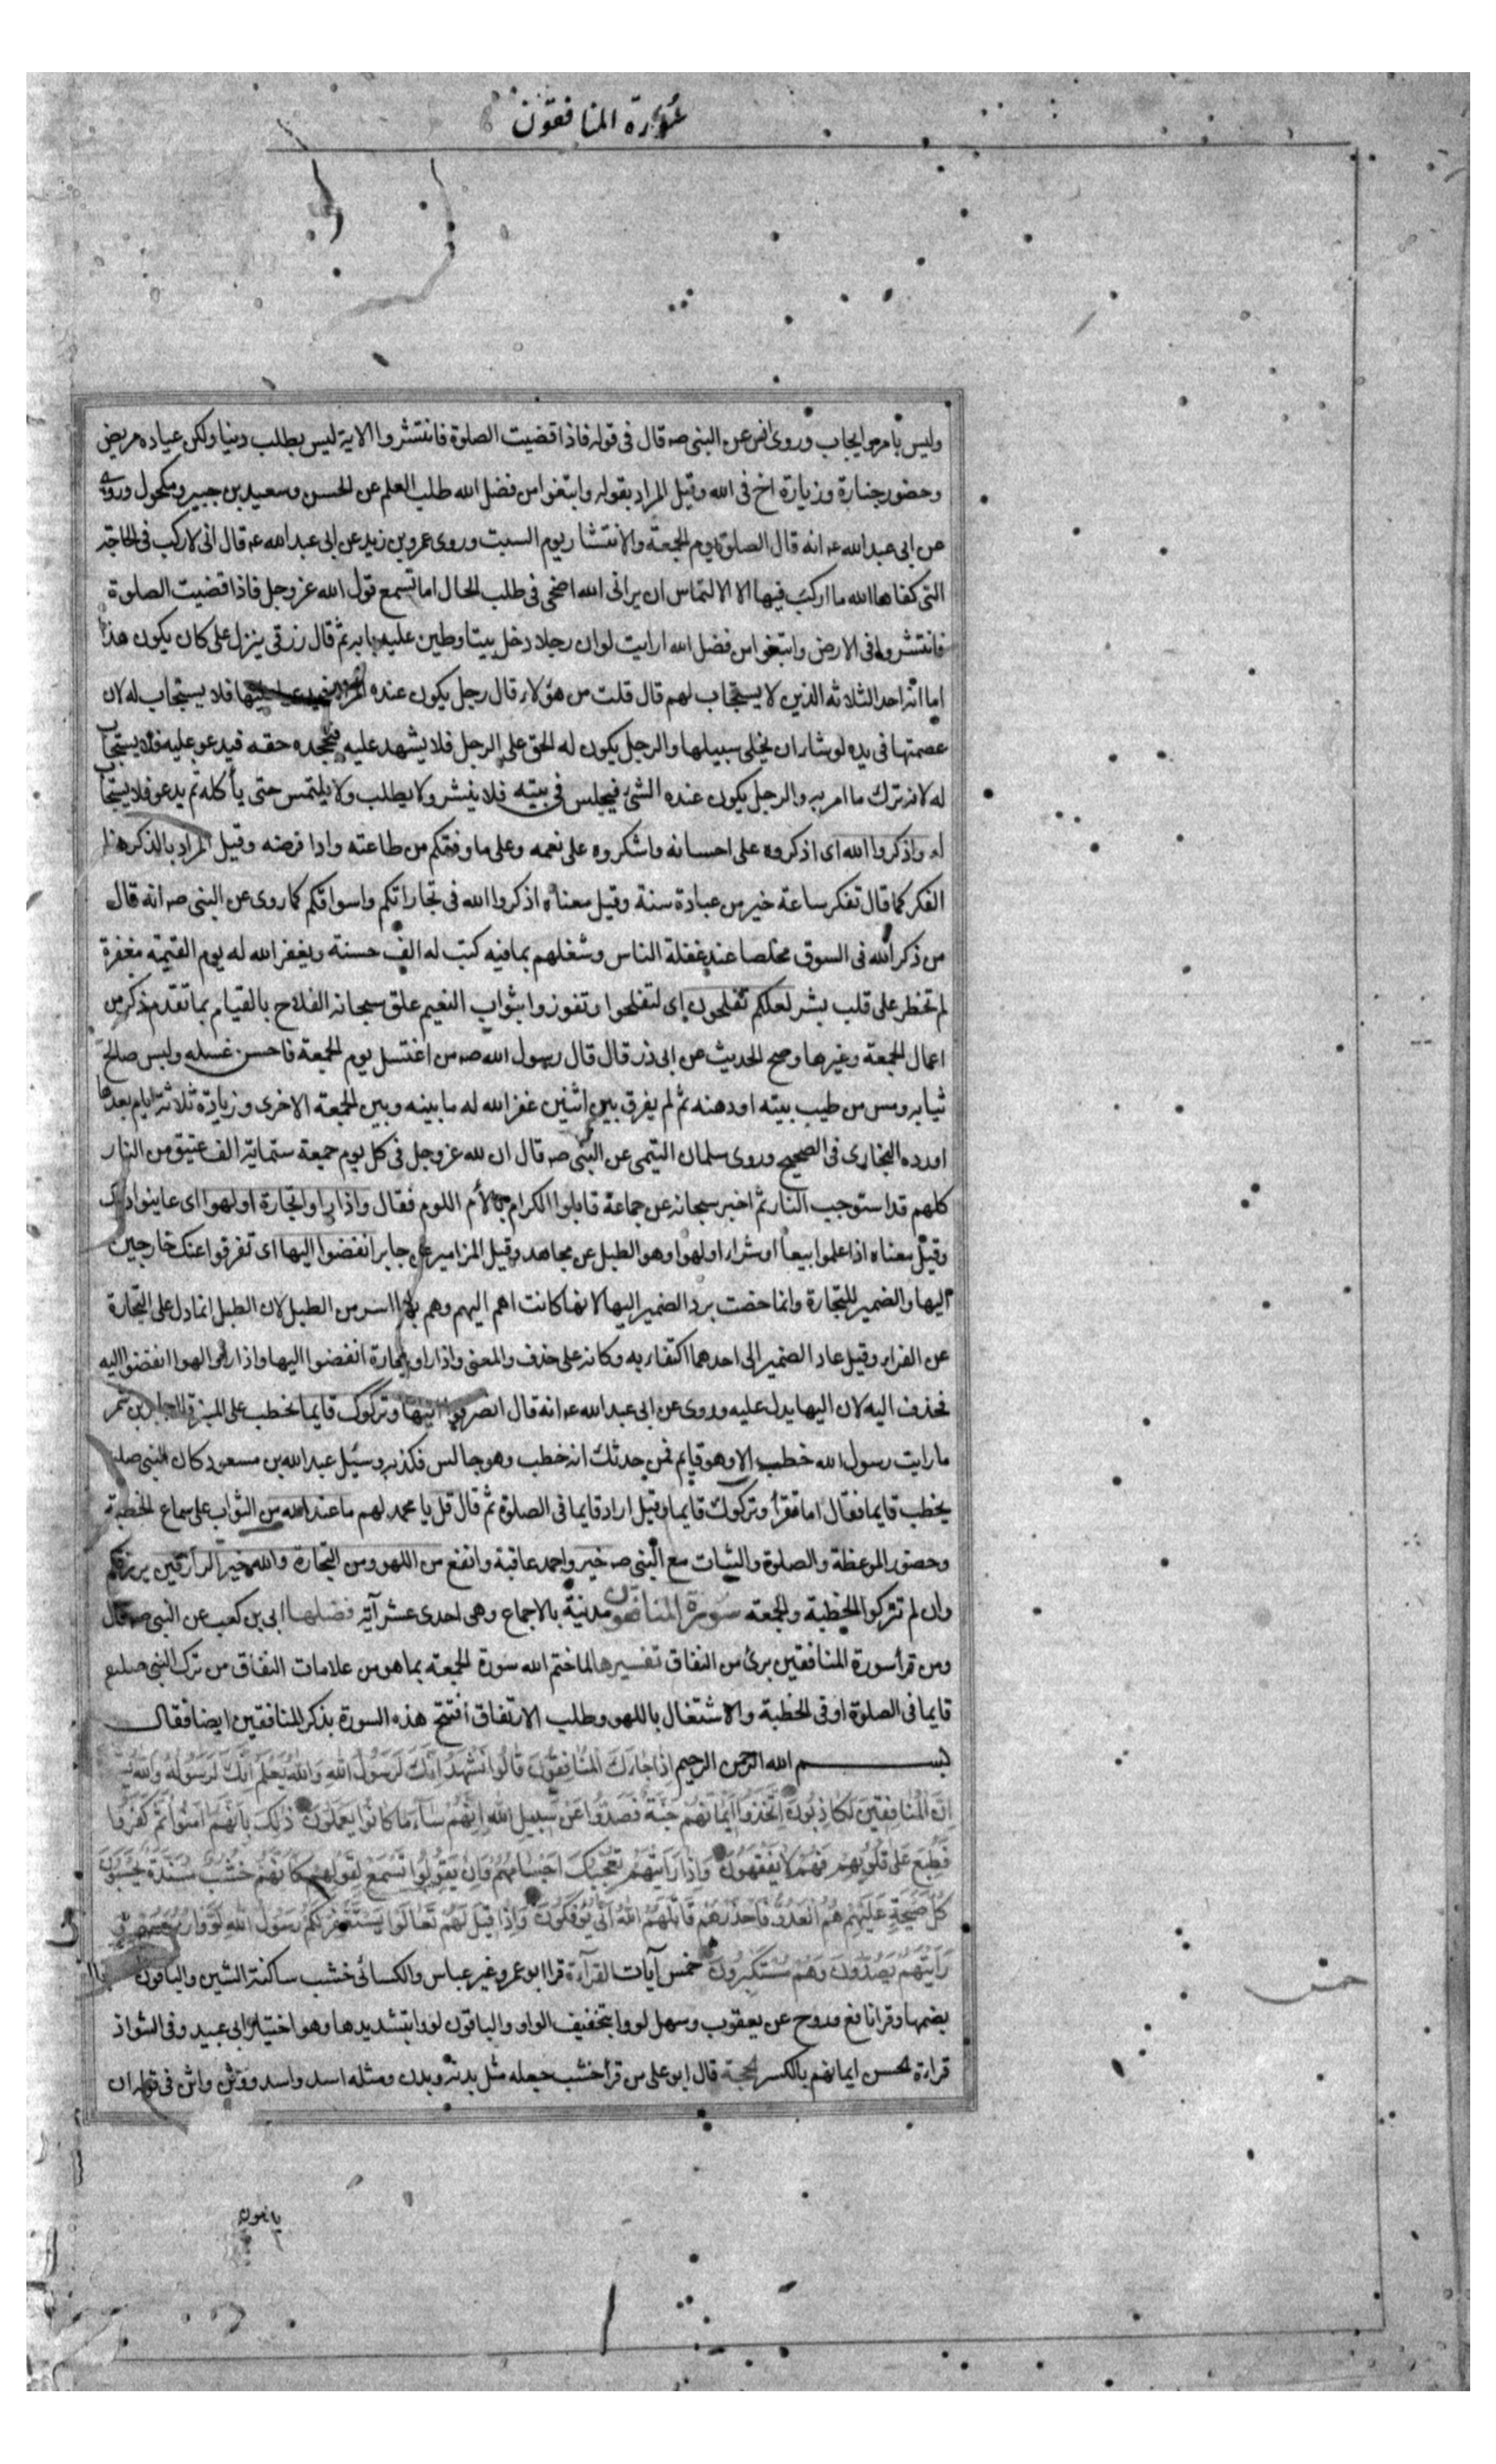 سورة المنافقون
وليس بامر ايجاب وروى انس عن النبى صـ قال فى قوله فاذا قضيت الصلوة فانتشروا الاية ليس بطلب دينا ولكن عيادة مريض
وحضور جنازة وزيارة اخ فى الله وقيل المراد بقوله وابتغوا من فضل الله طلب العلم عن الحسن وسعيد بن جبير ومكحول وروى
عن ابى عبد الله عـ انه قال الصلوة يوم الجمعة والانتشار يوم السبت وروى عمرو بن زيد عن ابى عبد الله عـ قال انى لاركب فى الحاجة
التى كفاها الله ما اركب فيها الا الالتماس ان يرانى الله اضحى فى طلب الحال اما تسمع قول الله عز وجل فاذا قضيت الصلوة
فانتشروا فى الارض وابتغوا من فضل الله ارايت لو ان رجلا دخل بيتا وطين عليه بابه ثم قال رزقى ينزل على كان يكون هذا
اما انه احد الثلاثة الذين لا يستجاب لهم قال قلت من هؤلاء قال رجل يكون عنده المراة فيدعو عليها فلا يستجاب له لان
عصمتها فى يده لو شاء ان يخلى سبيلها والرجل يكون له الحق على الرجل فلا يشهد عليه فيجحده حقه فيدعو عليه فلا يستجاب
له لانه ترك ما امر به والرجل يكون عنده الشئ فيجلس فى بيته فلا ينتشر ولا يطلب ولا يلتمس حتى يأكله ثم يدعو فلا يستجاب
له واذكروا الله اى اذكروه على احسانه واشكروه على نعمه وعلى ما وفقكم من طاعته واداء فرضه وقيل المراد بالذكر هنا
الفكر كما قال تفكر ساعة خير من عبادة سنة وقيل معناه اذكروا الله فى تجاراتكم واسواقكم كما روى عن النبى صـ انه قال
من ذكر الله فى السوق مخلصا عند غفلة الناس وشغلهم بما فيه كتب له الف حسنة ويغفر الله له يوم القيمة مغفرة
لم تخطر على قلب بشر لعلكم تفلحون اى لتفلحوا وتفوزوا بثواب النعيم علق سبحانه الفلاح بالقيام بما تقدم ذكره من
اعمال الجمعة وغيرها وصح الحديث عن ابى ذر قال قال رسول الله صـ من اغتسل يوم الجمعة فاحسن غسله ولبس صالح
ثيابه ومس من طيب بيته او دهنه ثم لم يفرق بين اثنين غفر الله له ما بينه وبين الجمعة الاخرى وزيادة ثلاثة ايام بعدها
اورده البخارى فى الصحيح وروى سلمان التيمى عن النبى صـ قال ان لله عز وجل فى كل يوم جمعة ستمائة الف عتيق من النار
كلهم قد استوجب النار ثم اخبر سبحانه عن جماعة قابلوا الكرام بالأم اللوم فقال واذا راوا تجارة او لهوا اى عاينوا ذلك
وقيل معناه اذا علموا بيعا او شراء او لهوا وهو الطبل عن مجاهد وقيل المزامير عن جابر انفضوا اليها اى تفرقوا عنك خارجين
اليها والضمير للتجارة وانما خصت برد الضمير اليها لانها كانت اهم اليهم وهم بها اسر من الطبل لان الطبل انما دل على التجارة
عن الفراء وقيل عاد الضمير الى احدهما اكتفاء به وكانه على حذف والمعنى واذا راو تجارة انفضوا اليها واذا راوا لهوا انفضوا اليه
فحذف اليه لان اليها يدل عليه وروى عن ابى عبد الله عـ انه قال انصرفوا اليها وتركوك قايما تخطب على المنبر قال جابر بن سمر
ما رايت رسول الله خطب الا وهو قايم فمن حدثك انه خطب وهو جالس فكذبه وسئل عبد الله بن مسعود كان النبى صلعم
يخطب قايما فقال اما تقرأ وتركوك قايما وقيل اراد قايما فى الصلوة ثم قال قل يا محمد لهم ما عند الله من الثواب على سماع الخطبة
وحضور الموعظة والصلوة والثبات مع النبى صـ خير واحمد عاقبة وانفع من اللهو ومن التجارة والله خير الرازقين يرزقكم
وان لم تتركوا الخطبة والجمعة سورة المنافقون مدنية بالاجماع وهى احدى عشر آية فضلها ابى بن كعب عن النبى صـ قال
ومن قرأ سورة المنافقين برئ من النفاق تفسيرها لما ختم الله سورة الجمعة بما هو من علامات النفاق من ترك النبى صلعم
قايما فى الصلوة او فى الخطبة والاشتغال باللهو وطلب الارتفاق افتتح هذه السورة بذكر المنافقين ايضا فقال
بسم الله الرحمن الرحيم اذا جاءك المنافقون قالوا نشهد انك لرسول الله والله يعلم انك لرسوله والله
ان المنافقين لكاذبون اتخذوا ايمانهم جنة فصدوا عن سبيل الله انهم ساء ما كانوا يعملون ذلك بانهم امنوا ثم كفروا
فطبع على قلوبهم فهم لا يفقهون واذا رايتهم تعجبك اجسامهم وان يقولوا تسمع لقولهم كانهم خشب مسندة يحسبون
كل صيحة عليهم هم العدو فاحذرهم قاتلهم الله انى يوفكون واذا قيل لهم تعالوا يستغفر لكم رسول الله لووا رؤسهم
رايتهم يصدون وهم مستكبرون خمس آيات القرآءة قرا ابو عمرو غير عباس والكسائى خشب ساكنة الشين والباقون
بضمها وقرا نافع وروح عن يعقوب وسهل لووا بتخفيف الواو والباقون لووا بتشديدها وهو اختيار ابى عبيد وفى الشواذ
قراءة الحسن ايمانهم بالكسر الحجة قال ابو على من قرأ خشب جعله مثل بدنة وبدن ومثله اسد واسد ووثن واثن فى قوله ان